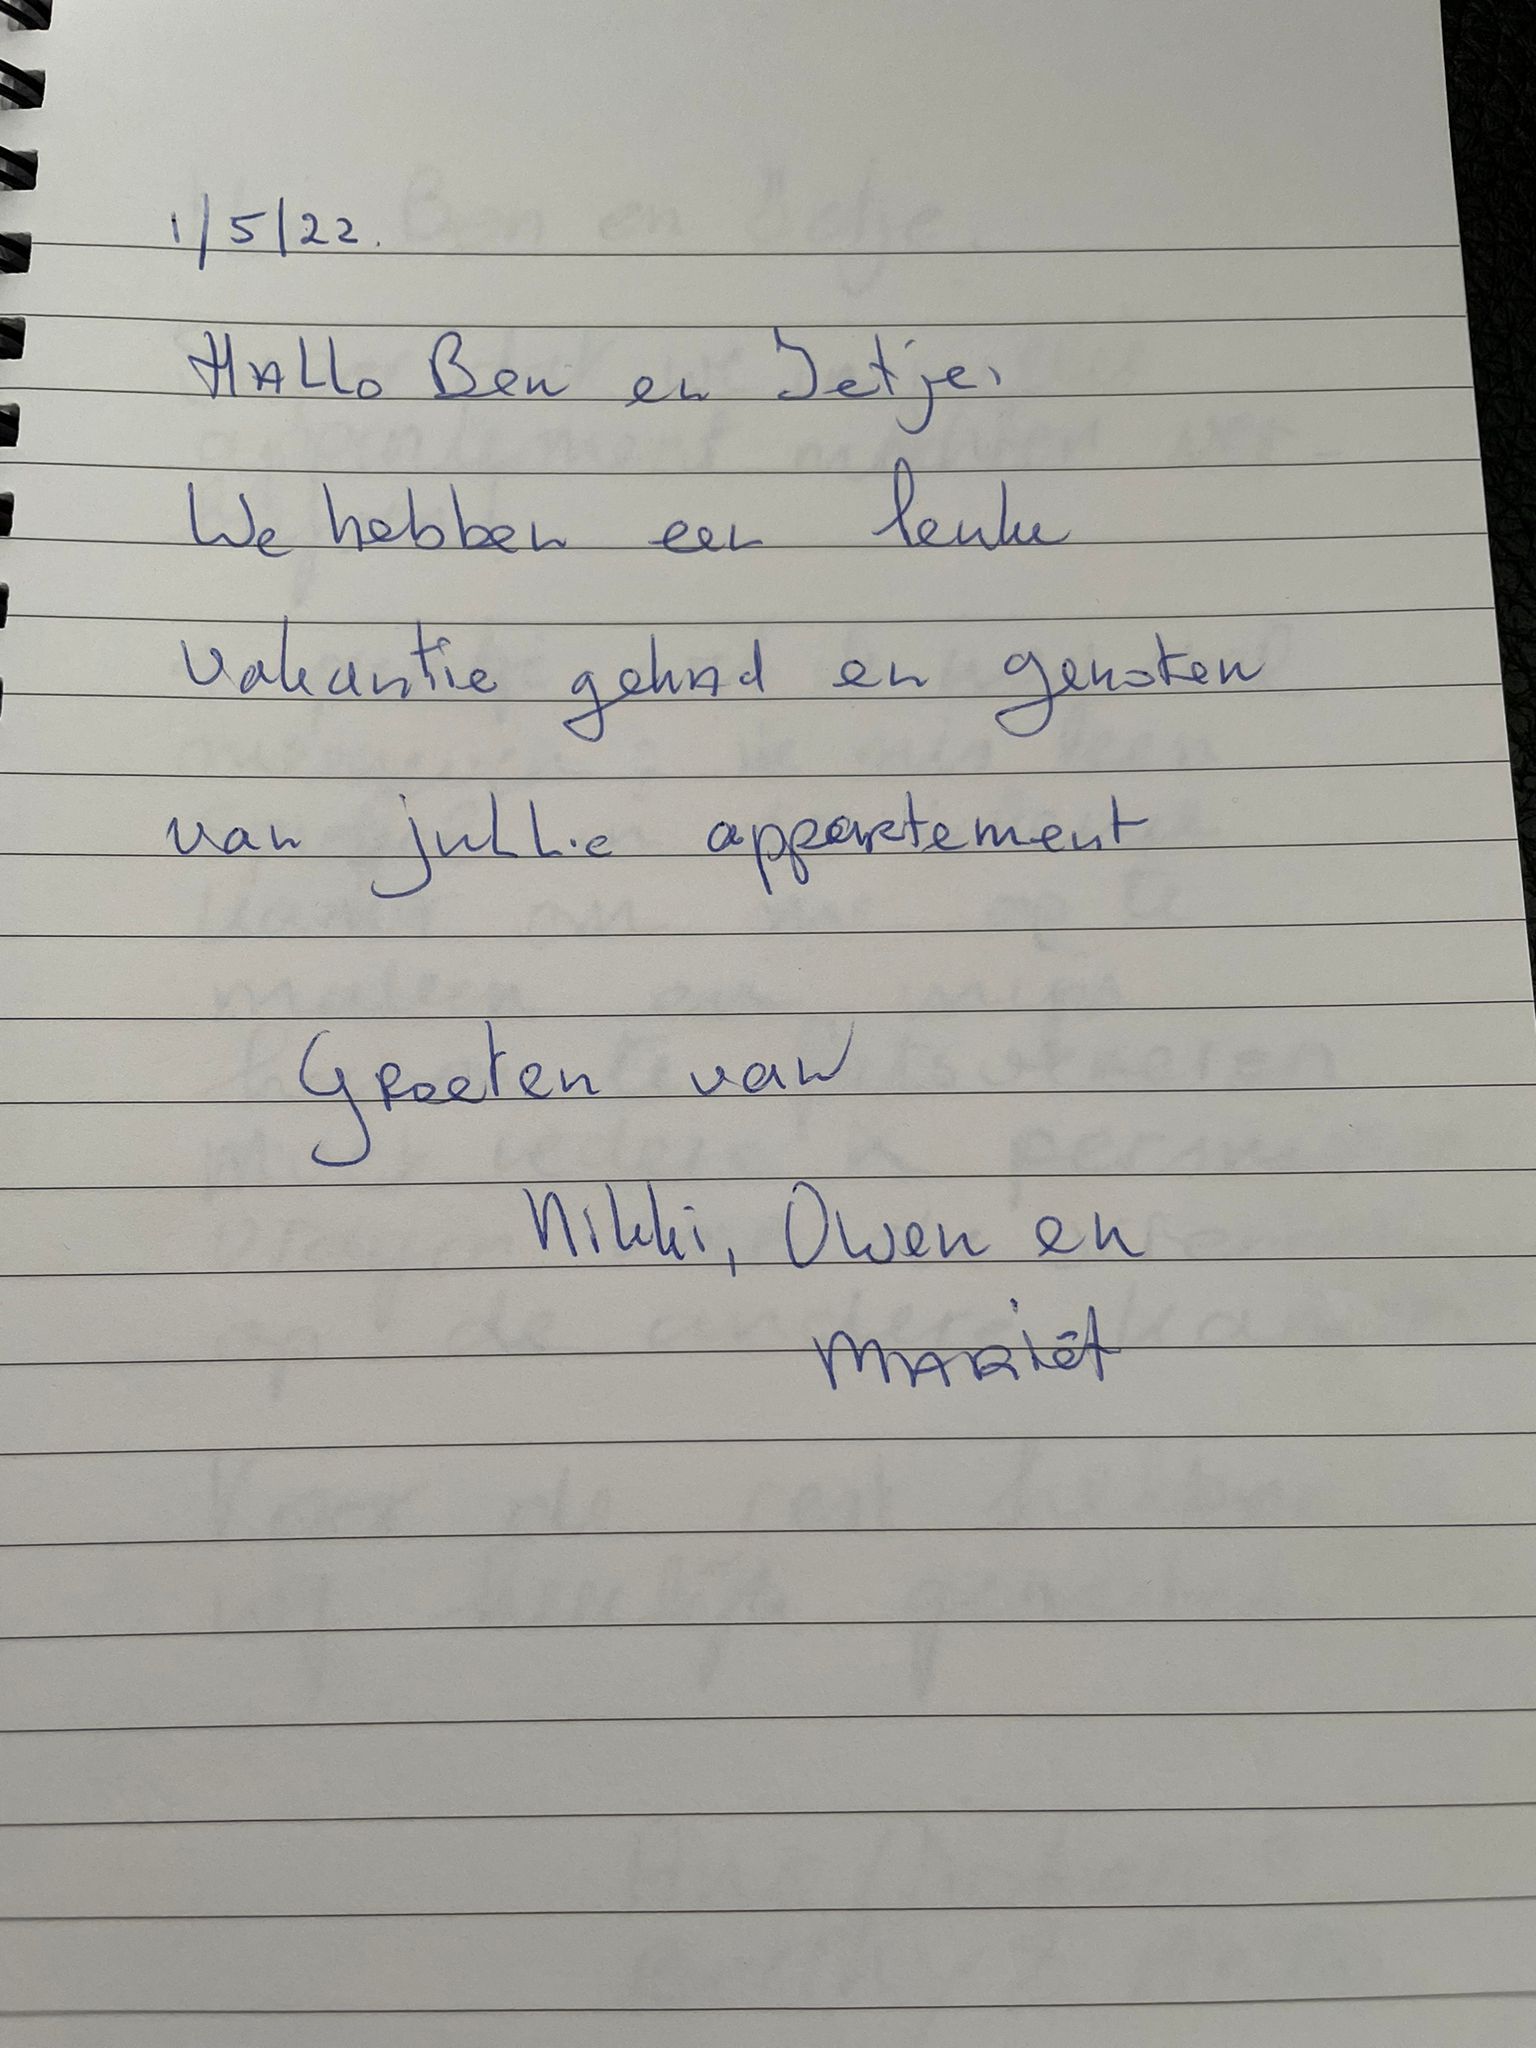 1/5/22.
Hallo Ben en Jetje,
We hebben een leuke
vakantie gehad en genoten
van jullie appartement
Groeten van
Nikki, Owen en
Mariët